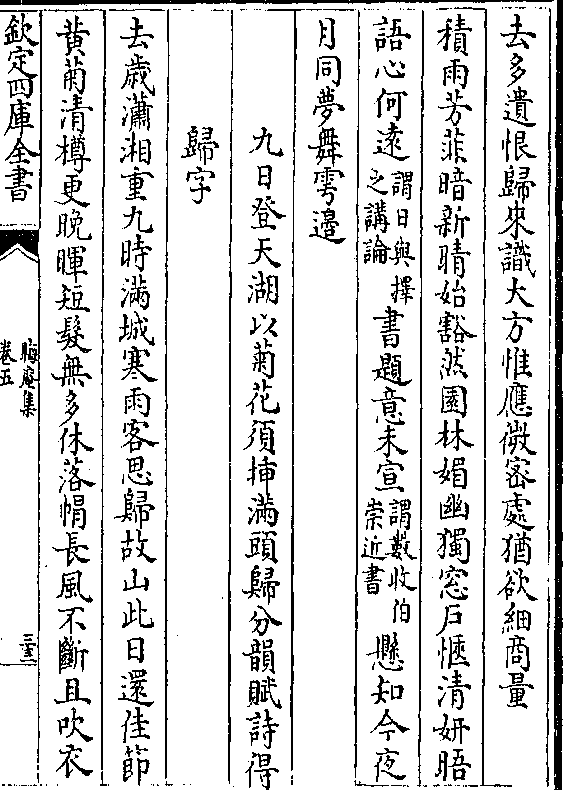 去多遺恨歸來識大方惟應微密處猶欲細商量
積雨芳菲暗新晴始豁然園林媚幽獨窓戶愜清妍晤
語心何遠謂日與擇之講論書題意未宣謂數收伯崇近書懸知今夜
月同夢舞雩邊
九日登天湖以菊花須揷滿頭歸分韻賦詩得
歸字
去歳瀟湘重九時滿城寒雨客思歸故山此日還佳節
黄菊清樽更晩暉短髮無多休落帽長風不斷且吹衣
欽定四庫全書
晦庵集
卷五